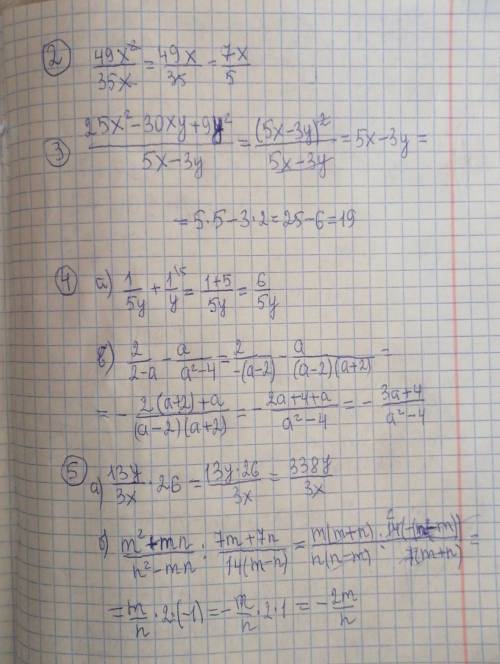 2 49x²/35x = 49x/35 = 7x/5
3 (25x²-30xy+9y²)/(5x-3y) = (5x-3y)²/(5x-3y) = 5x-3y =
= 5·5-3·2=25-6=19
4 а) 1/5y + 1\5/y = (1+5)/5y = 6/5y
б) 2/(2-a) - a/(a²-4) = 2/(-(a-2)) - a/((a-2)(a+2)) =
= - (2(a+2)+a)/((a-2)(a+2)) = - (2a+4+a)/(a²-4) = - (3a+4)/(a²-4)
5 а) 13y/3x · 26 = (13y·26)/3x = 338y/3x
б) (m²+mn)/(n²-mn) : (7m+7n)/(14(m-n)) = m(m+n)/(n(n-m)) · 14(-(n-m))/(7(m+n)) =
= m/n · 2·(-1) = - m/n · 2·1 = - 2m/n